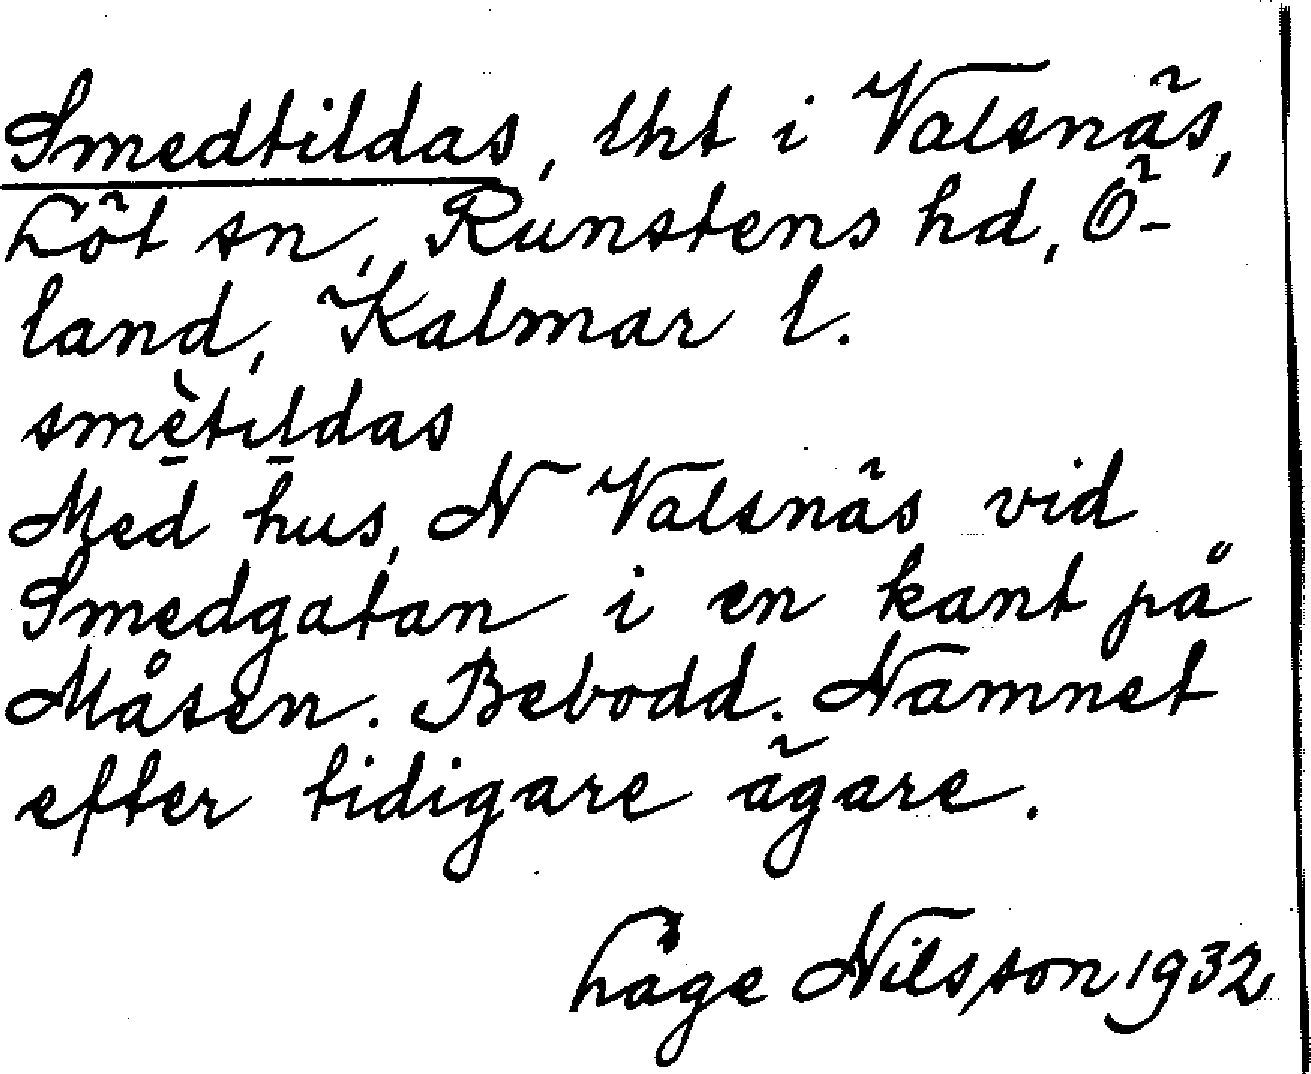 Smedtildas, lht i Valsnäs,
Löt sn, Runstens hd, Ö-
land, Kalmar l.
smètildas
Med hus, N Valsnäs vid
Smedgatan i en kant på
Måsen. Bebodd. Namnet
efter tidigare ägare.
Låge Nilsson 1932